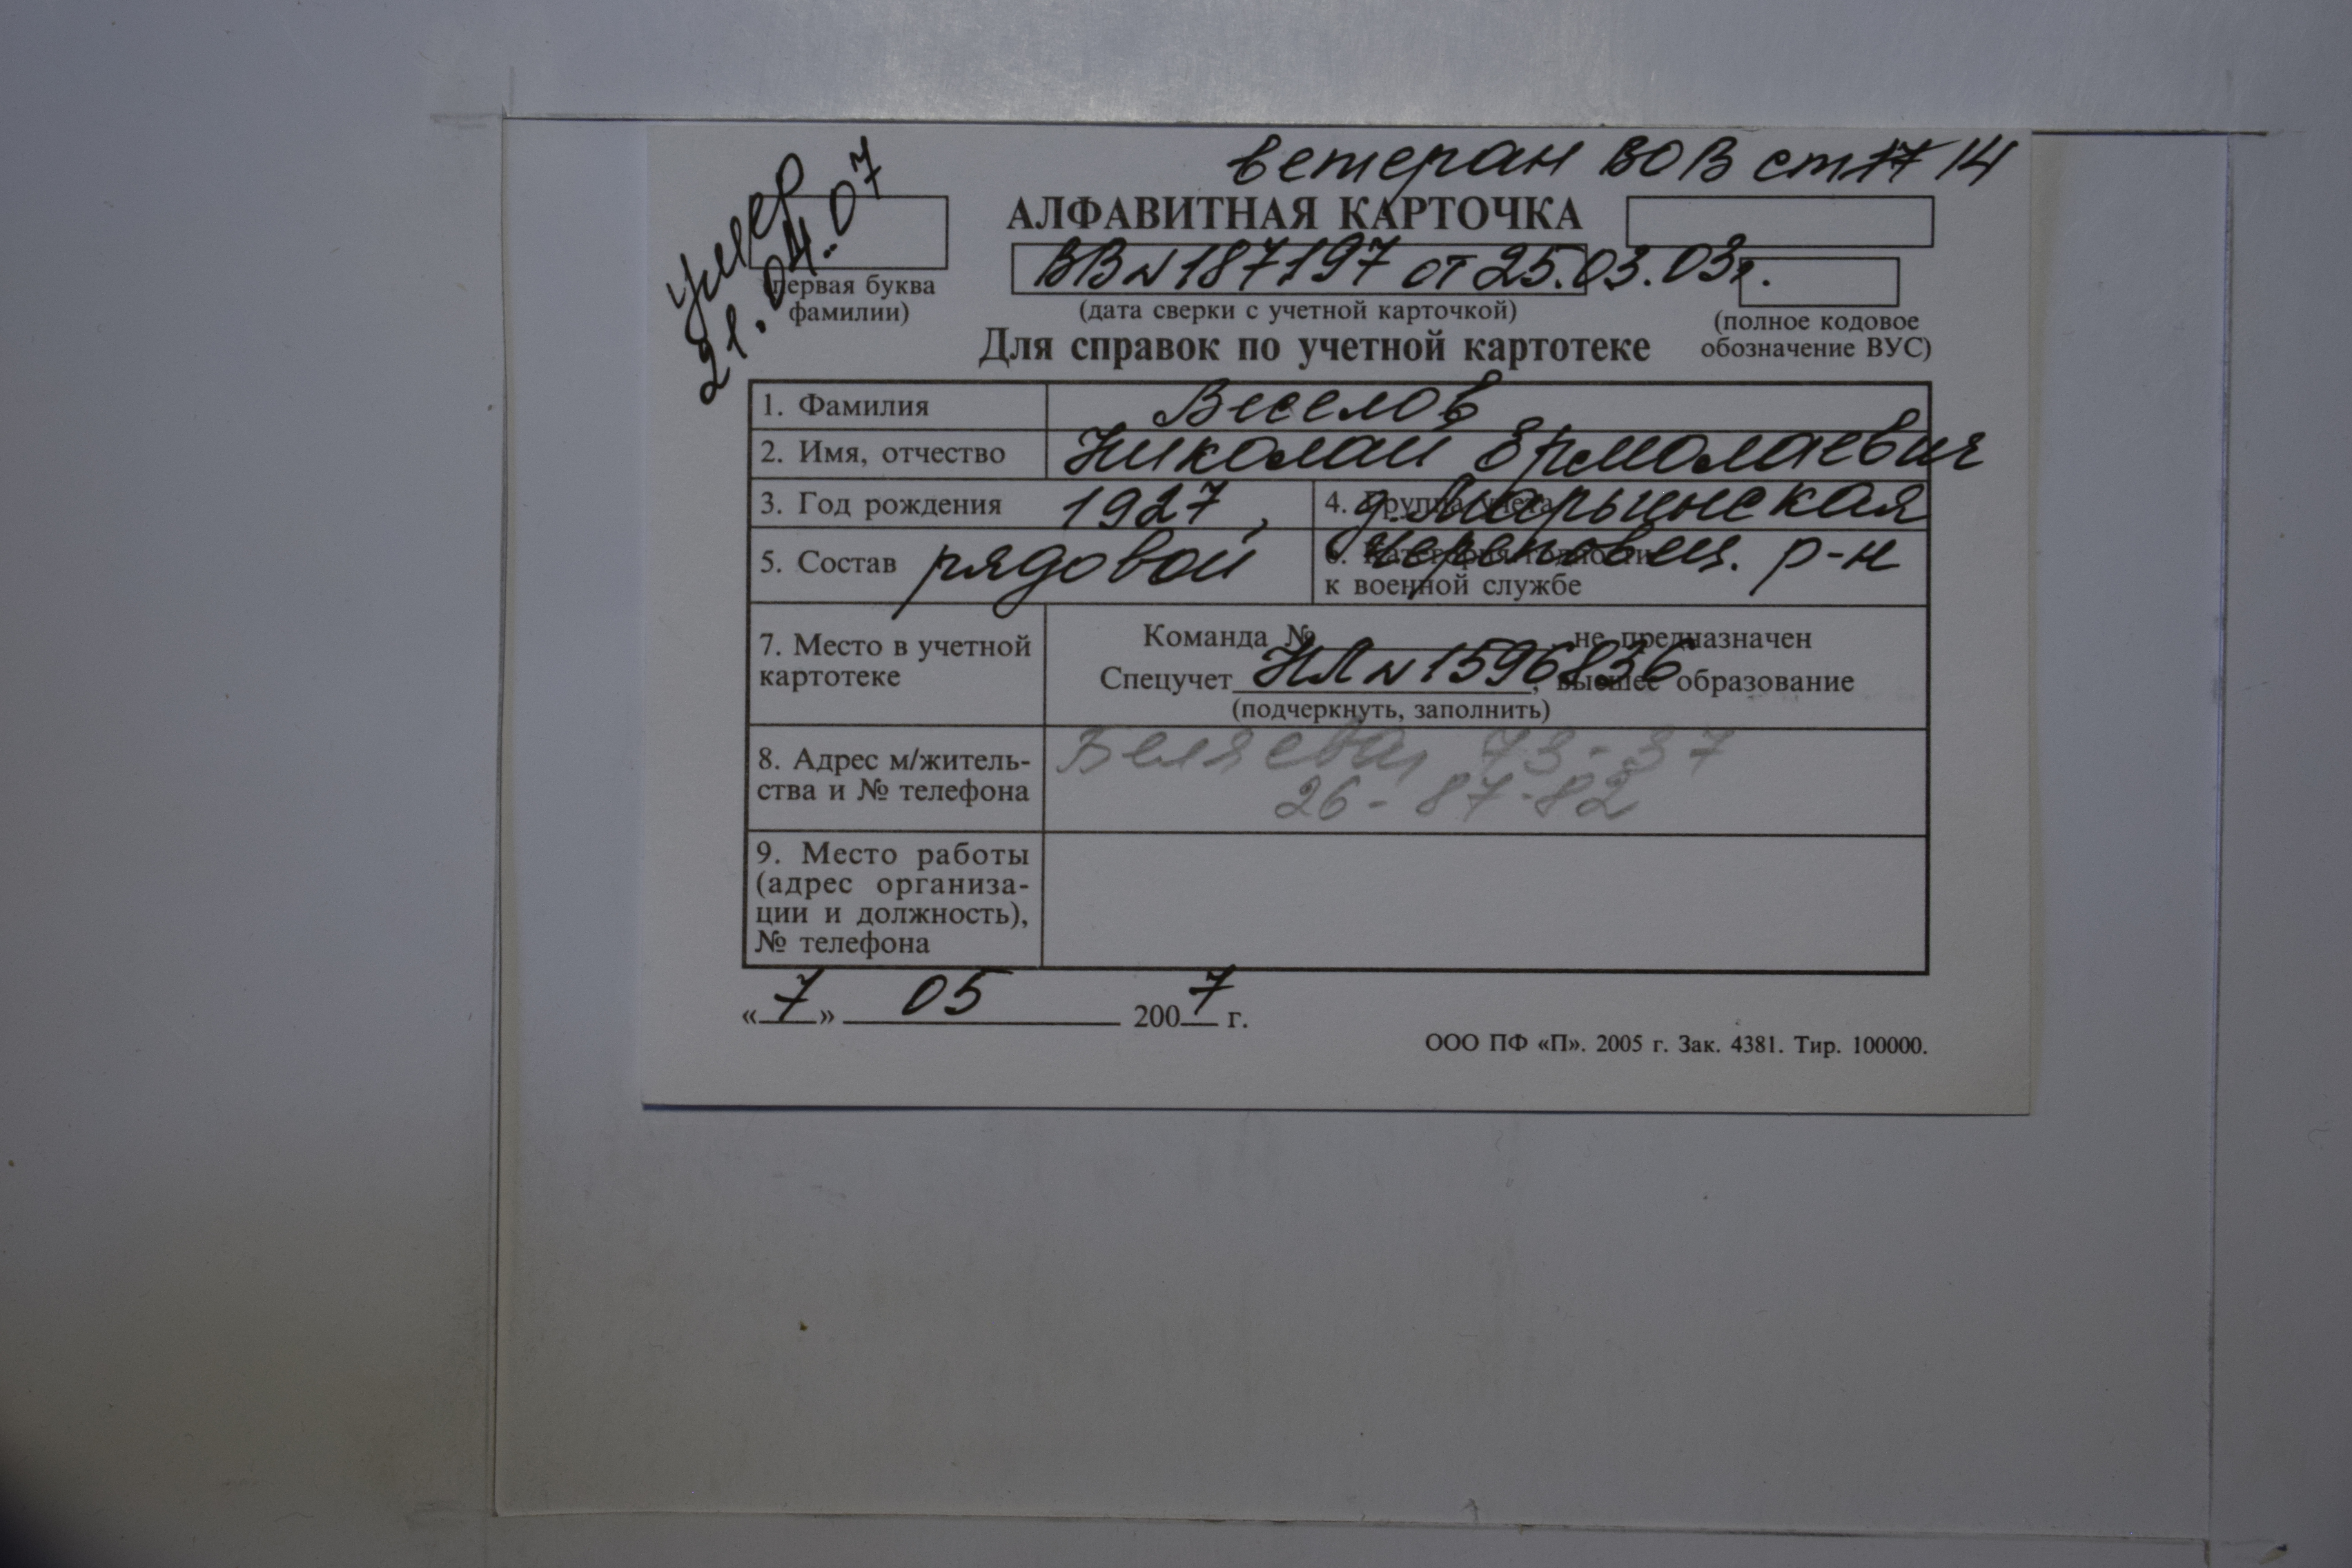 ветеран ВОВ ст 17 14
умер
21.04.07
АЛФАВИТНАЯ КАРТОЧКА
ВВ N 187197 от 25.03.03г.
(первая буква фамилии)
(дата сверки с учетной карточкой)
(полное кодовое обозначение ВУС)
Для справок по учетной картотеке
1. Фамилия Веселов
2. Имя, отчество Николай Ермолаевич
3. Год рождения 1927,
4. Группа учета д. Марьинская
5. Состав рядовой
6. Категория годности Череповец. р-н
к военной службе
7. Место в учетной
картотеке
Команда №, не предназначен
Спецучет НЛ N 1596836, высшее образование
(подчеркнуть, заполнить)
8. Адрес м/житель-
ства и № телефона
Беляева, 73-37
26-87-82
9. Место работы
(адрес организа-
ции и должность),
№ телефона
«7» 05 2007 г.
ООО ПФ «П». 2005 г. Зак. 4381. Тир. 100000.